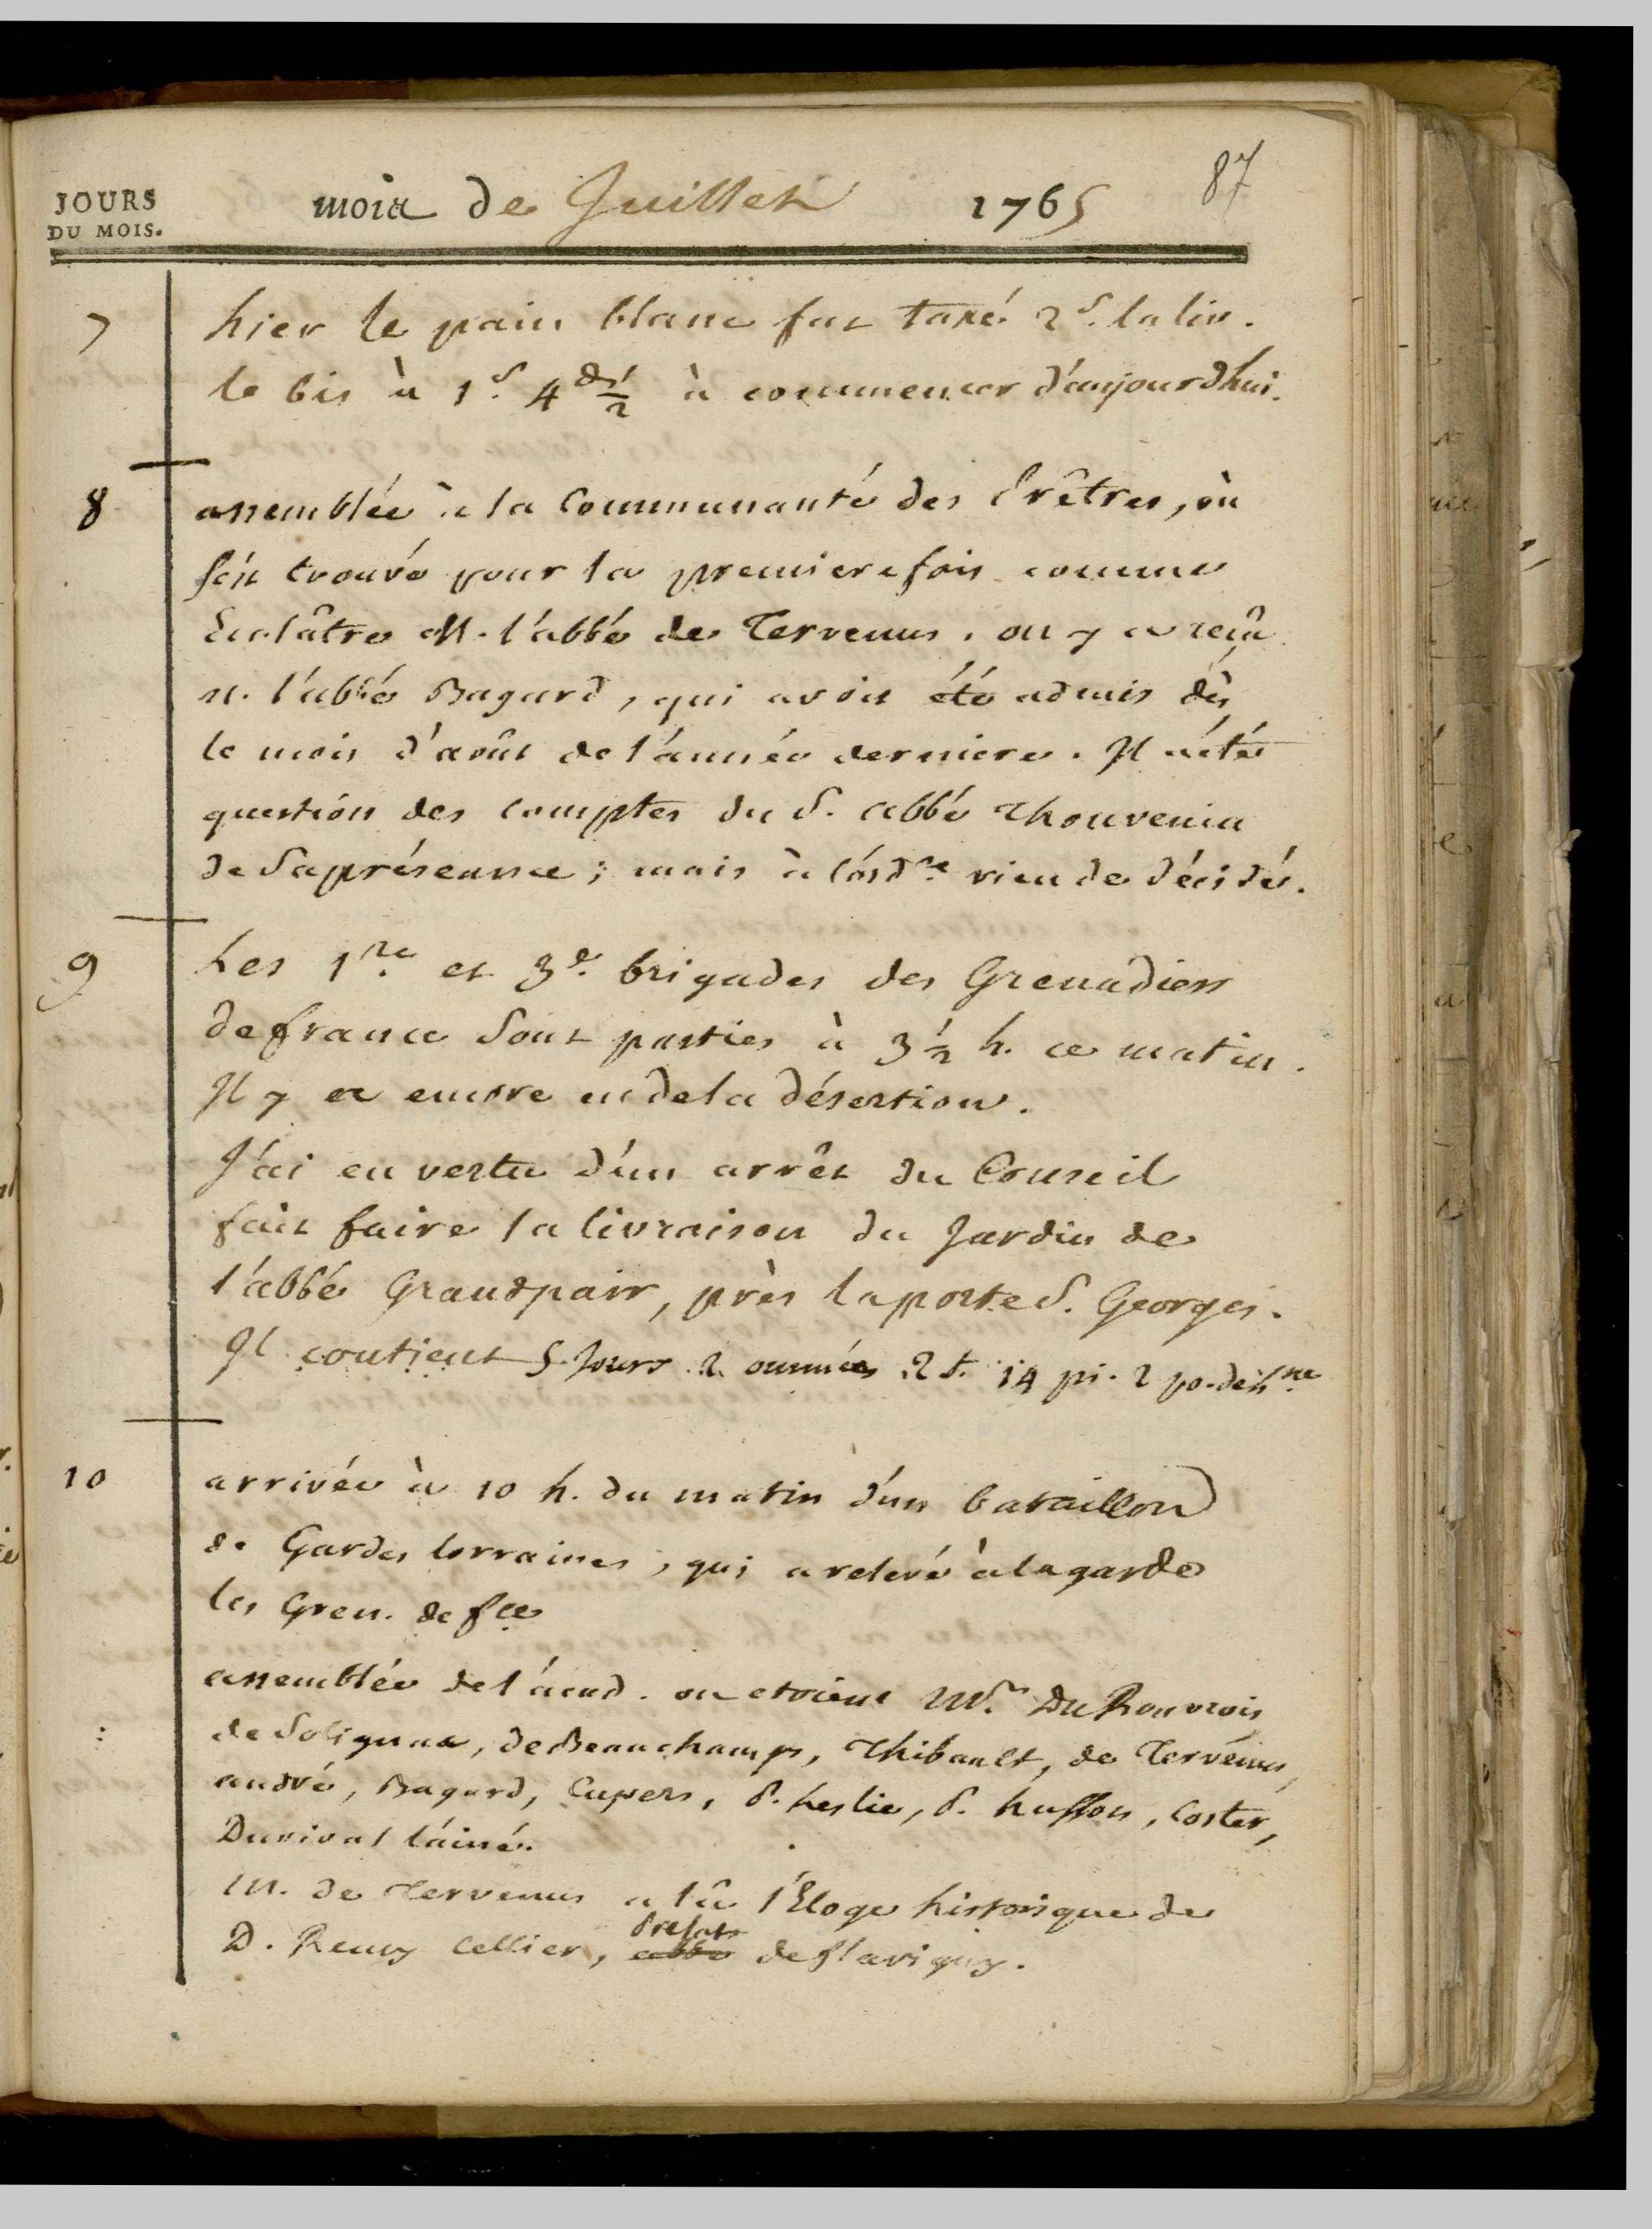 87
JOURS
DU MOIS.
mois de Juillet 1765
7 hier le pain blanc fut taxé 2 s. la liv.
le bis à 1 s. 4 d. 1/2 à commencer d'aujourdhui.
8 assemblée à la Communauté des Prêtres, où
s'est trouvé pour la premiere fois comme
Ecolâtre M. l'abbé de Tervenus. on y a reçu
M. l'abbé Bagard, qui avoit été admis dès
le mois d'août de l'année derniere. Il a été
question des comptes du S. abbé Thouvenin
de sa présenance; mais à l'ord.re rien de décidé.
9 Les 1.re et 3.e brigades des Grenadiers
de france sont parties à 3 1/2 h. ce matin.
Il y a encore eu de la désertion.
J'ai en vertu d'un arrêt du Conseil
fait faire la livraison du Jardin de
l'abbé Grandpair, près la porte S. Georges.
Il contient 5 Jours 2 ommées 2 t. 14 pi. 2 po. de
10 arrivée à 10 h. du matin d'un bataillon
de Gardes lorraines, qui a relevé à la garde
les Gren. de fce
assemblée de l'acad. où etoient Mrs. Du Rouvrois
de Solignac, de Beauchamps, Thibault, de Tervenus,
andré, Bagard, Cupers, P. Leslie, P. husson, Coster,
Durival l'ainé.
M. de Tervenus a lû l'Eloge historique de
Prélat
D. Remy Cellier, abbé de flavigny.